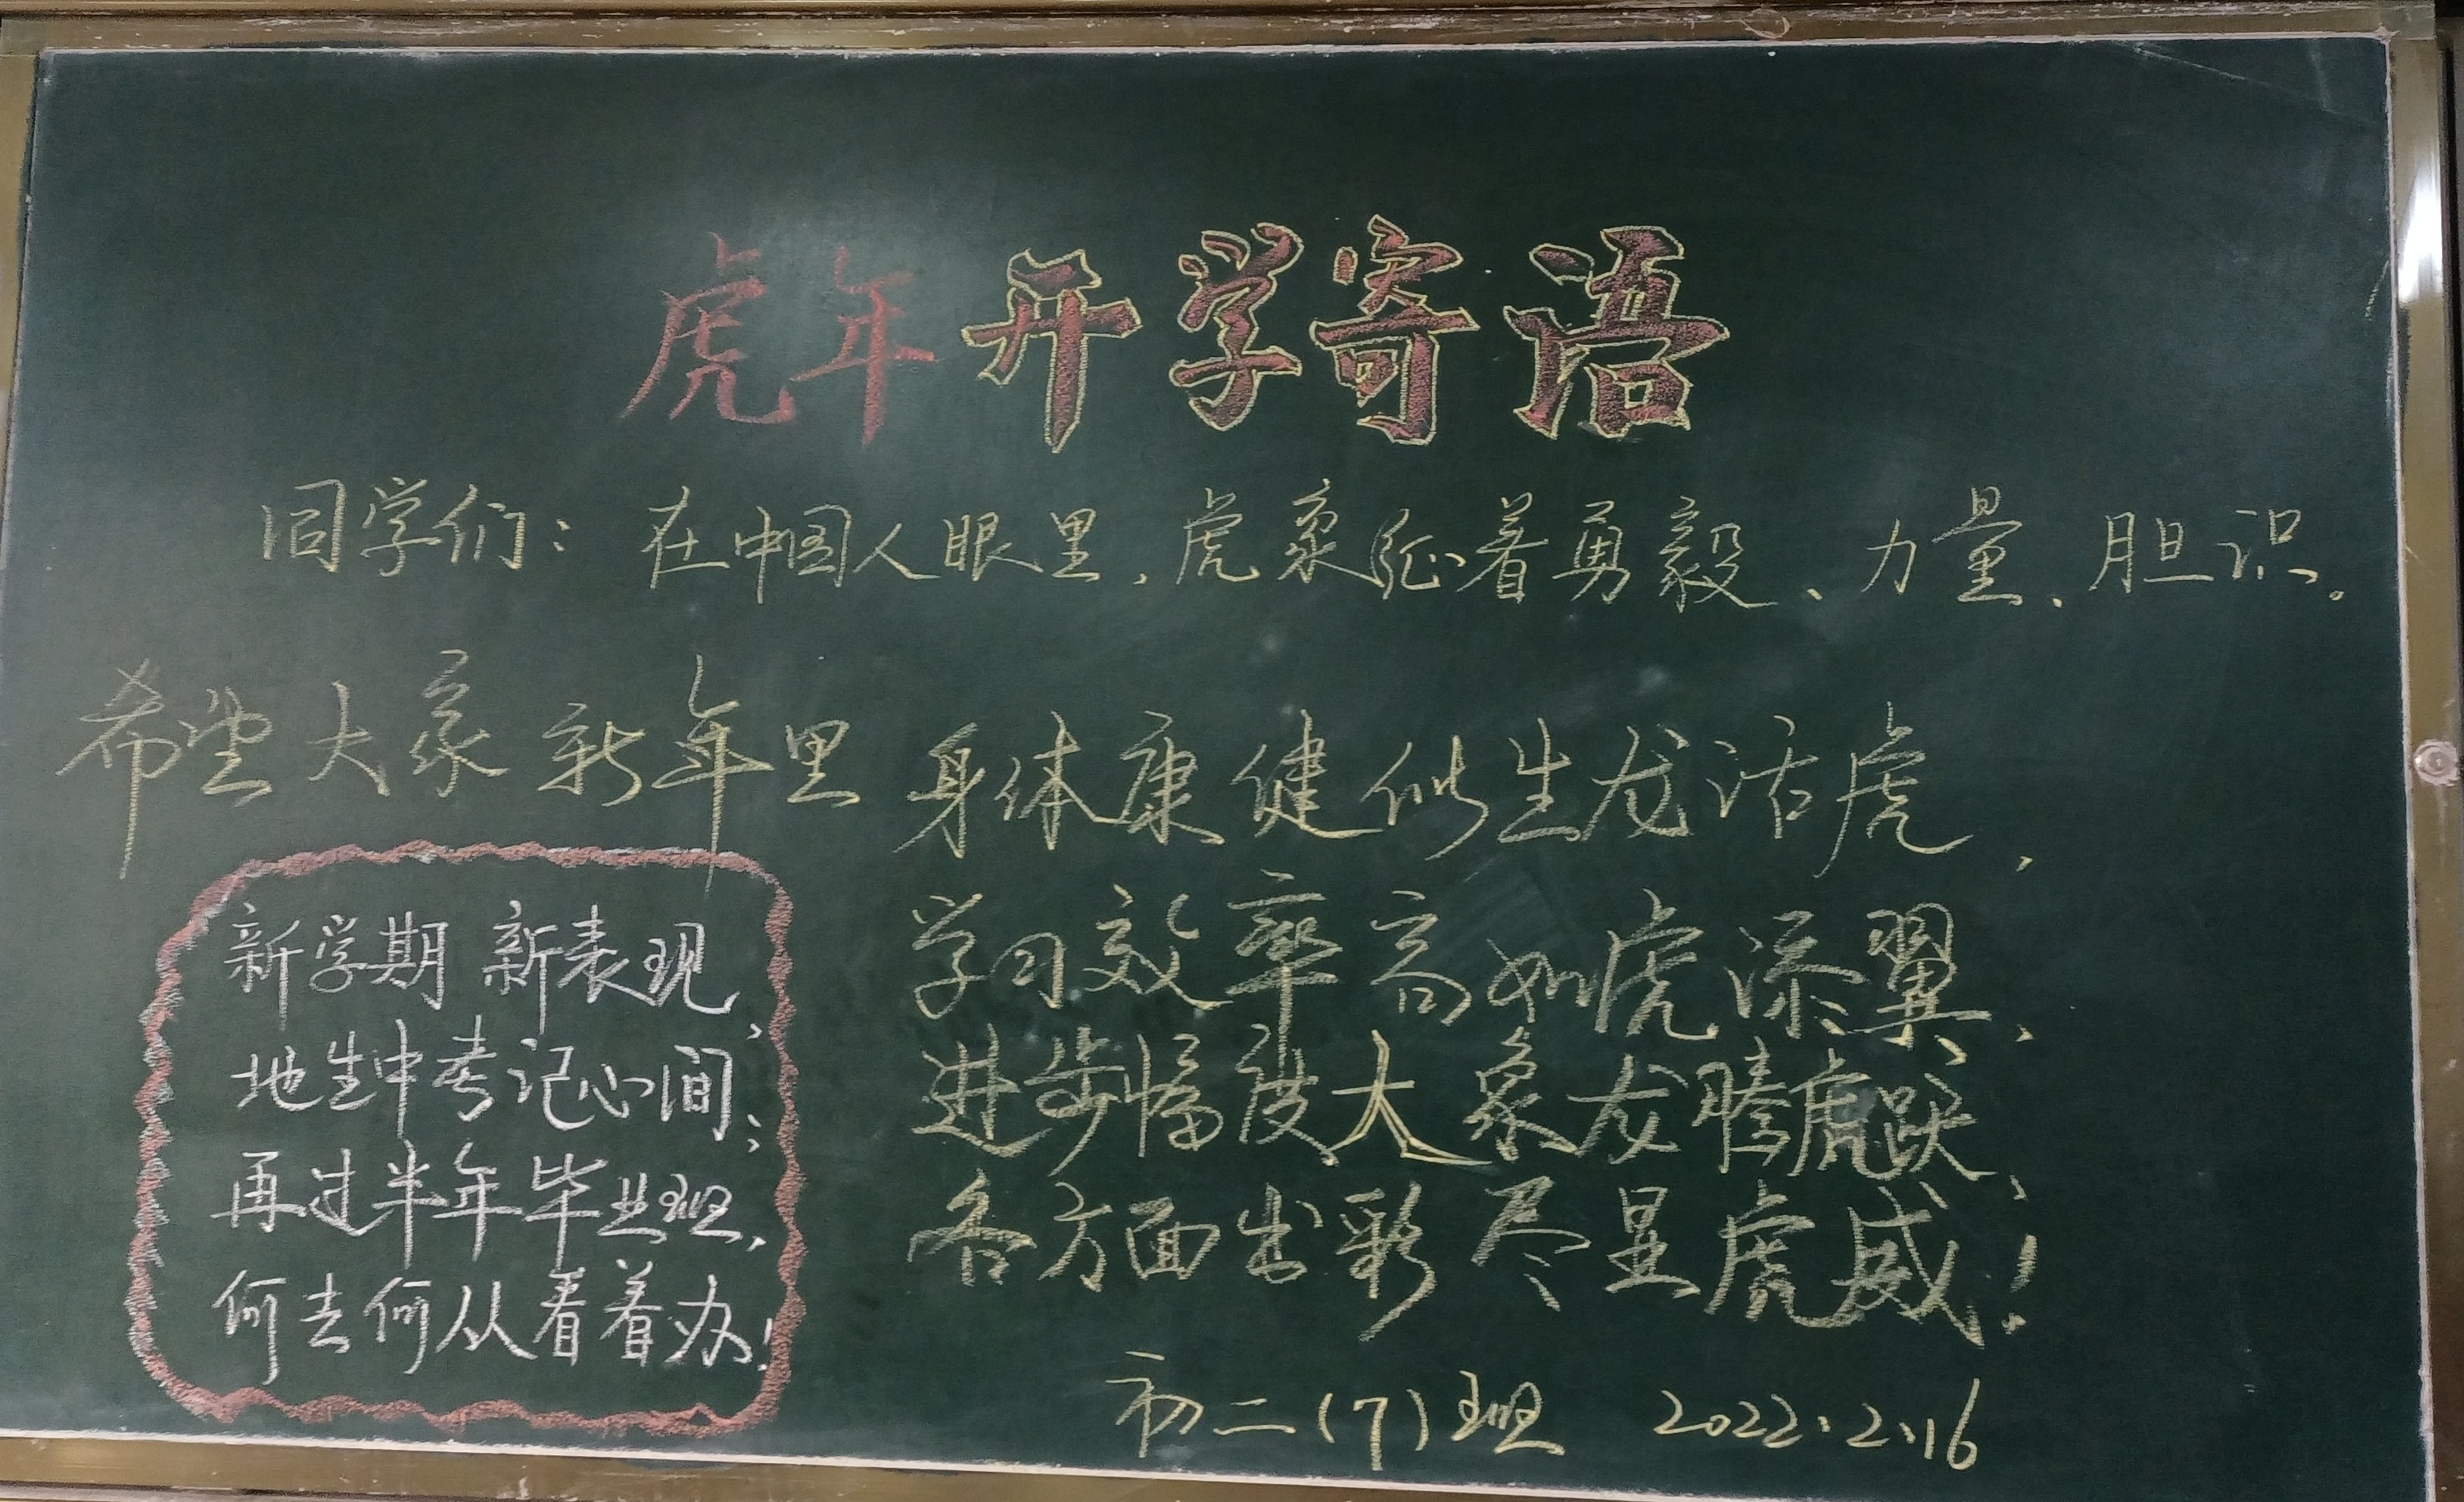 虎年开学寄语
同学们：在中国人眼里，虎象征着勇毅、力量、胆识。
希望大家新年里
身体康健似生龙活虎，
学习效率高如虎添翼，
进步幅度大象龙腾虎跃，
各方面出彩尽显虎威！
新学期 新表现，
地生中考记心间；
再过半年毕业班，
何去何从看着办！
初二(7)班 2022.2.16